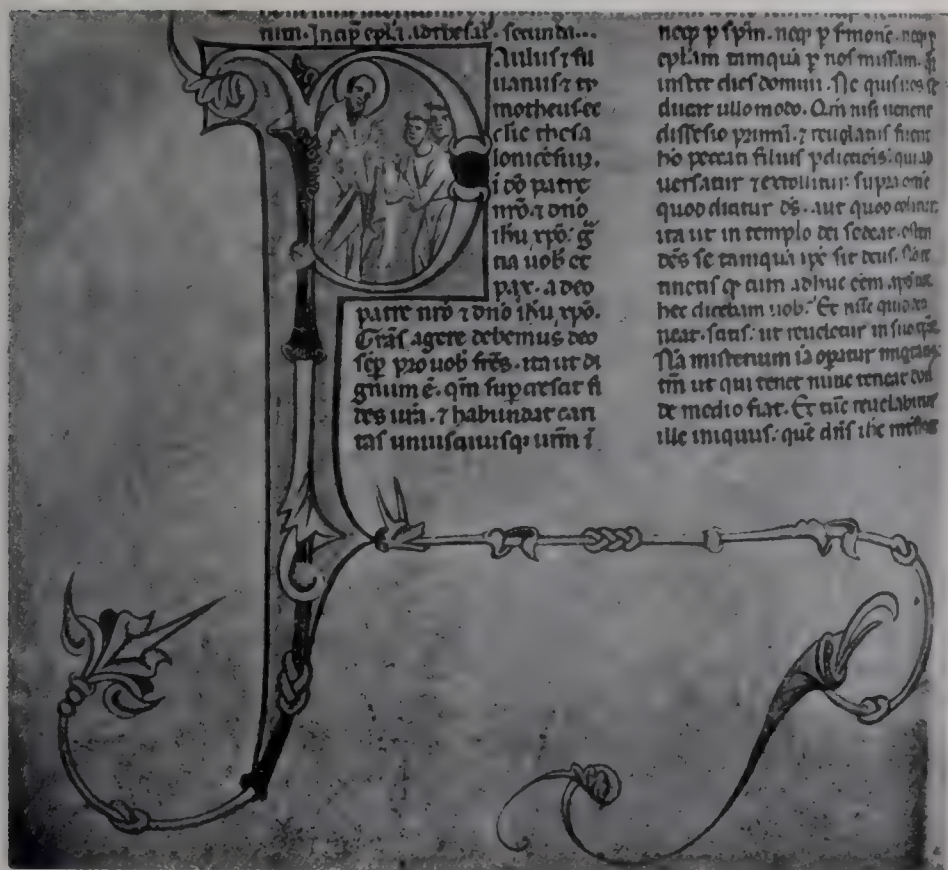 num. Incip̄ epl̄a. ad thesal̄. secunda...
Aulus ⁊ sil
uanus ⁊ ty
motheus. ec
clīe thesa
lonicēsiuɜ.
i dō patre
nr̄o. ⁊ dn̄o
ih̄u xp̄o. gr̄a
tia uob̄ et
pax. a deo
patre nr̄o ⁊ dn̄o ih̄u xp̄o.
Gr̄as agere debemus deo
sēp pro uob̄ fr̄es. ita ut di
gnum ē. qm̄ sup̄crescat fi
des ur̄a. ⁊ habundat cari
tas uniuscuiusqɜ ur̄m ī
neqɜ p̄ sp̄m. neqɜ p̄ s̄monē. neqɜ p̄
epl̄am tamquā p̄ nos missam. q̄si
instet dies domini. Ne quis uos se
ducat ullo modo. Qm̄ nisi uenerit
dissesio primū. ⁊ reuelatus fuerit
hō peccati filius p̄dicciōis. qui ad
uersatur ⁊ extollitur. supra om̄e
quod dicitur ds̄. aut quod colitur.
ita ut in templo dei sedeat. osten
dēs se tamquā ip̄e sit deus. Nō re
tinetis qɜ cum adhuc eēm apud uos
hec dicebam uob̄. Et nūc quid deti
neat. scitis. ut reueletur in suo tp̄e.
Nā misterium iā op̄atur iniqtatis.
tm̄ ut qui tenet nunc teneat don̄
de medio fiat. Et tūc reuelabitur
ille iniquus. quē dn̄s ih̄c